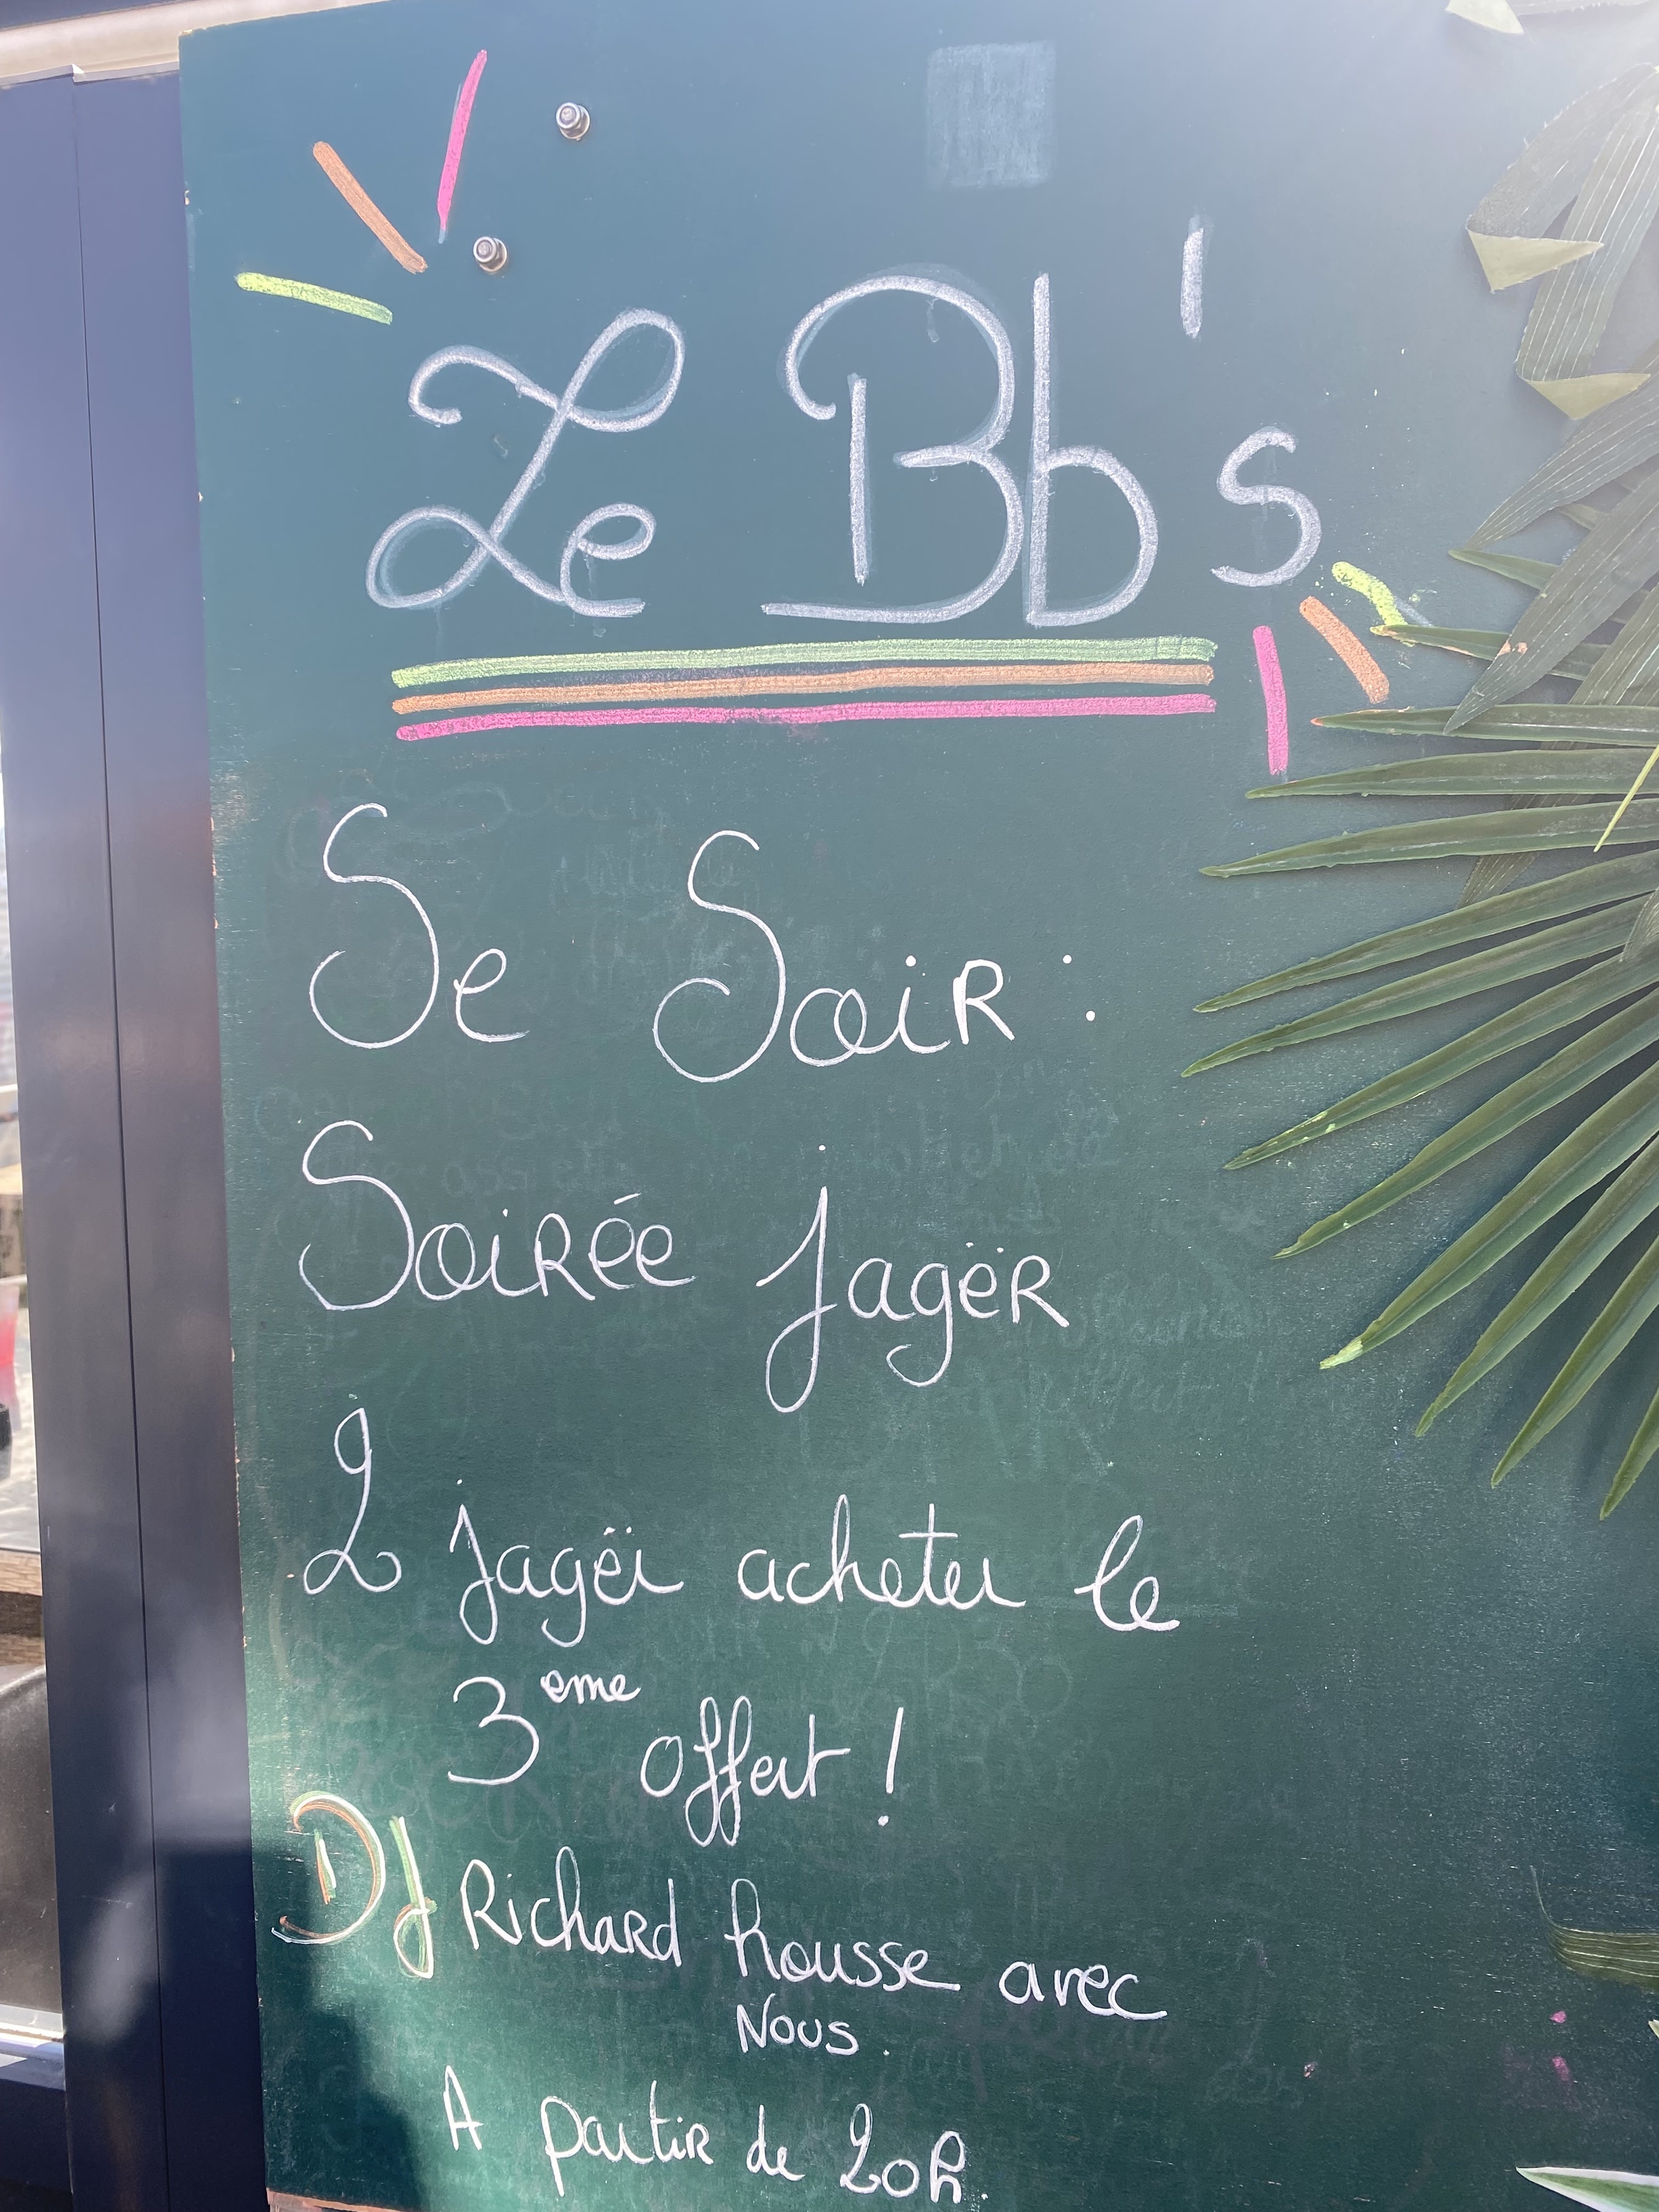 Le Bb's
Se Soir :
Soirée jagër
2 jagër acheter le
3eme offert !
DJ Richard housse avec
Nous.
A partir de 20h.